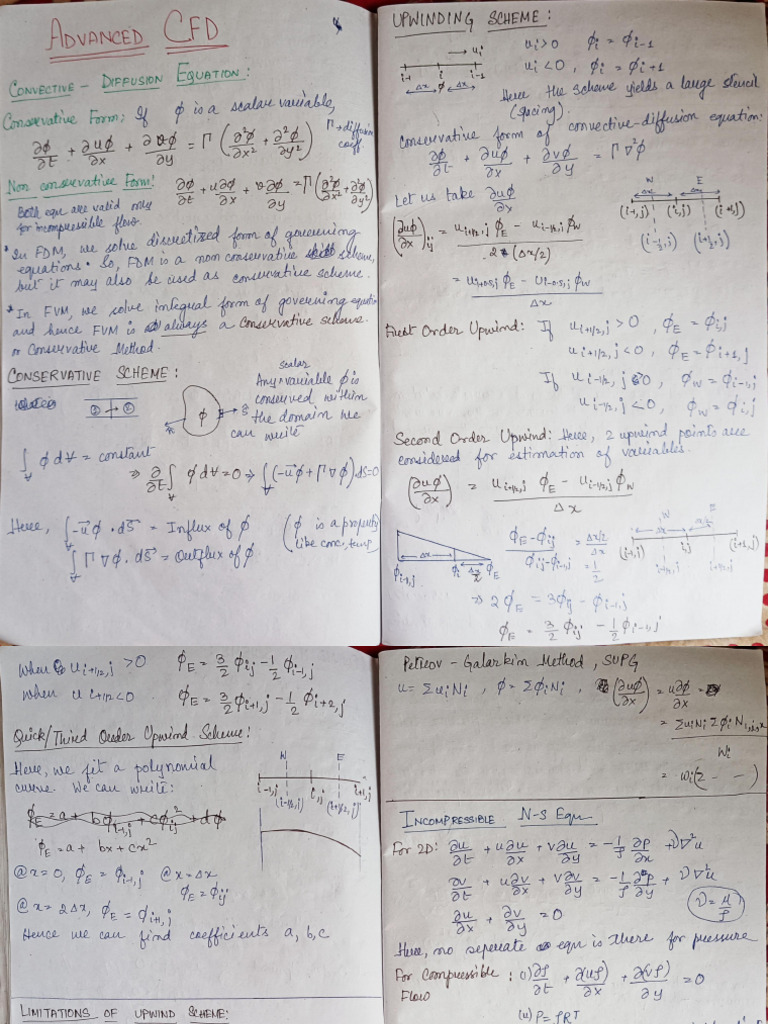 ADVANCED CFD
CONVECTIVE - DIFFUSION EQUATION:
Conservative Form: If φ is a scalar variable,
∂φ/∂t + ∂uφ/∂x + ∂vφ/∂y = Γ(∂²φ/∂x² + ∂²φ/∂y²) Γ→diffusion coeff.
Non conservative Form: ∂φ/∂t + u∂φ/∂x + v∂φ/∂y = Γ(∂²φ/∂x² + ∂²φ/∂y²)
Both eqn are valid only
for incompressible flow.
* In FDM, we solve discretized form of governing
equations. So, FDM is a non conservative scheme,
but it may also be used as conservative scheme.
* In FVM, we solve integral form of governing equation
and hence FVM is always a conservative scheme.
or Conservative Method.
CONSERVATIVE SCHEME:
scalar
Any variable φ is
conserved within
the domain we
can write
φ
∫ φ d∀ = constant
⇒ ∂/∂t ∫ φ d∀ = 0 ⇒ ∫(-u⃗φ + Γ∇φ) dS = 0
Here, ∫ -u⃗φ · dS⃗ = Influx of φ (φ is a property
∫ Γ∇φ · dS⃗ = Outflux of φ like conc,
UPWINDING SCHEME:
→ ui
ui>0 φi = φi-1
ui<0, φi = φi+1
i+1 i i-1
Δx φ Δx
Here the scheme yields a large stencil
(spacing).
Conservative form of convective-diffusion equation:
∂φ/∂t + ∂uφ/∂x + ∂vφ/∂y = Γ∇²φ
Let us take ∂uφ/∂x
W E
Δx Δx
(i-1,j) (i,j) (i+1,j)
(i-1/2,j) (i+1/2,j)
(∂uφ/∂x)ij = (ui+1/2,j φE - ui-1/2,j φW) / 2(Δx/2)
= (ui+0.5,j φE - ui-0.5,j φW) / Δx
First Order Upwind: If ui+1/2,j > 0, φE = φi,j
ui+1/2,j < 0, φE = φi+1,j
If ui-1/2,j > 0, φW = φi-1,j
ui-1/2,j < 0, φW = φi,j
Second Order Upwind: Here, 2 upwind points are
considered for estimation of variables.
(∂uφ/∂x) = (ui+1/2,j φE - ui-1/2,j φW) / Δx
φi-1,j Δx φi Δx/2 φE
(φE-φij)/(φij-φi-1,j) = (Δx/2)/Δx = 1/2
W E
(i-1,j) i,j (i+1,j)
i-1/2,j i+1/2,j
⇒ 2φE = 3φij - φi-1,j
φE = 3/2 φij - 1/2 φi-1,j
When ui+1/2,j > 0 φE = 3/2 φij - 1/2 φi-1,j
when u i+1/2 < 0 φE = 3/2 φi+1,j - 1/2 φi+2,j
Quick/Third Order Upwind Scheme:
Here, we fit a polynomial
curve. We can write:
W E
i-1,j i,j i+1,j
(i-1/2,j) (i+1/2,j)
φE = a + bx + cx²
@x=0, φE = φi-1,j @x=Δx
φE = φij
@x = 2Δx, φE = φi+1,j
Hence we can find coefficients a, b, c
LIMITATIONS OF UPWIND SCHEME:
Petrov - Galarkim Method, SUPG
u = ΣuiNi, φ = ΣφiNi, (∂uφ/∂x) = u∂φ/∂x
= ΣuiNi Σφi Ni,x
Wi
= wi(Σ - -)
INCOMPRESSIBLE N-S Eqn
For 2D: ∂u/∂t + u∂u/∂x + v∂u/∂y = -1/ρ ∂p/∂x + ν∇²u
∂v/∂t + u∂v/∂x + v∂v/∂y = -1/ρ ∂p/∂y + ν∇²u
ν = μ/ρ
∂u/∂x + ∂v/∂y = 0
Here, no seperate eqn is there for pressure
For Compressible : (i) ∂ρ/∂t + ∂(uρ)/∂x + ∂(vρ)/∂y = 0
Flow
(ii) P = ρRT